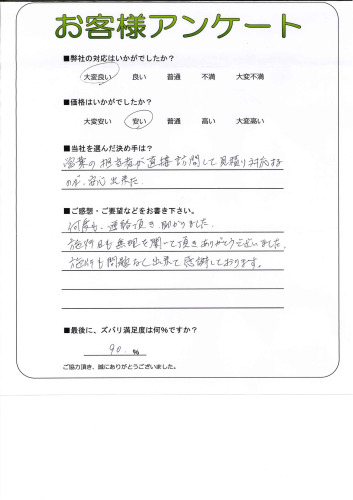 お客様アンケート
■弊社の対応はいかがでしたか?
大変良い 良い 普通 不満 大変不満
■価格はいかがでしたか?
大変安い 安い 普通 高い 大変高い
■当社を選んだ決め手は?
営業の担当者が直接訪問して見積り対応する
ので、安心出来た。
■ご感想・ご要望などをお書き下さい。
何度も、連絡頂き助かりました。
施行日も無理を聞いて頂きありがとうございました。
施行も問題なし出来て感謝しております。
■最後に、ズバリ満足度は何%ですか?
90 %
ご協力頂き、誠にありがとうございました。